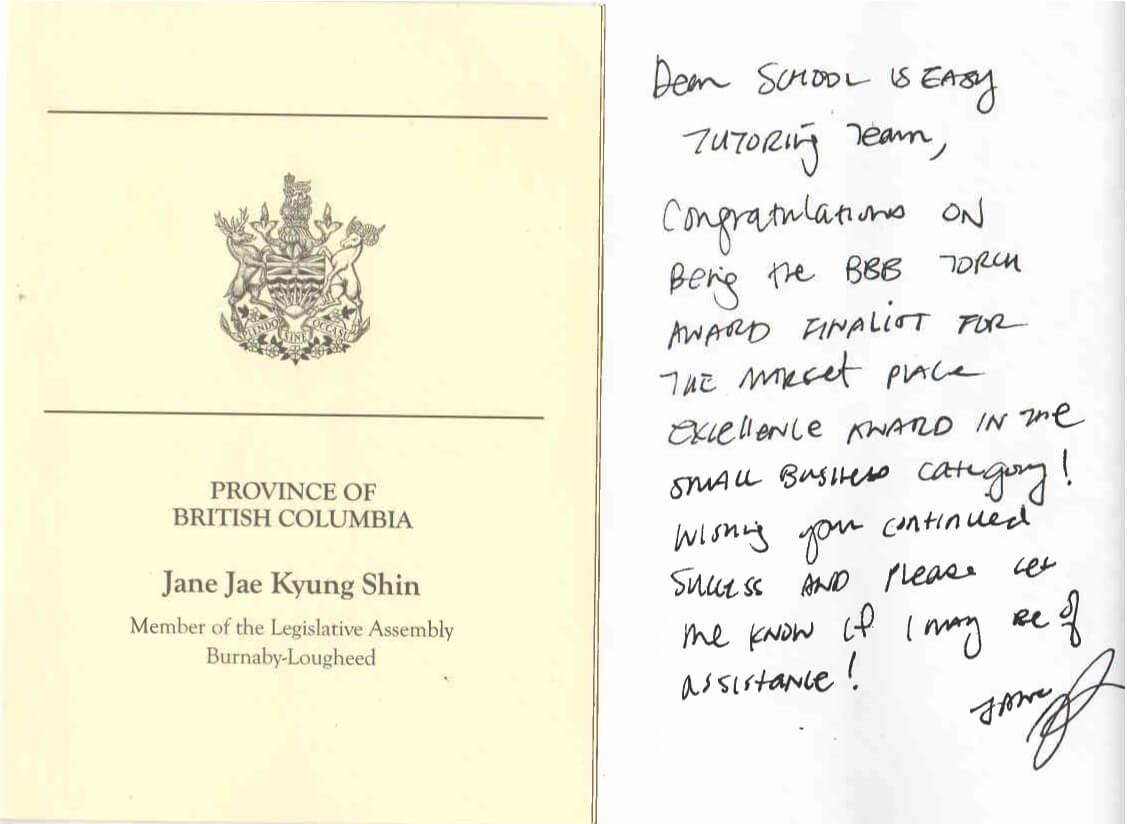 SPLENDOR SINE OCCASU
PROVINCE OF
BRITISH COLUMBIA
Jane Jae Kyung Shin
Member of the Legislative Assembly
Burnaby-Lougheed
Dear SCHOOL IS EASY
TUTORING Team,
Congratulations ON
Being the BBB TORCH
AWARD FINALIST FOR
THE MARKET PLACE
EXCELLENCE AWARD IN THE
SMALL BUSINESS Category!
Wishing you continued
Success AND Please let
me KNOW if I may BE of
assistance!
JANE